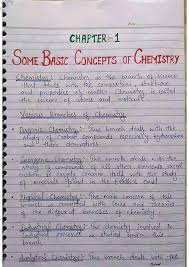 CHAPTER-1
SOME BASIC CONCEPTS OF CHEMISTRY
Chemistry: Chemistry is the branch of science
that deals with the composition, structure
and properties of matter. Chemistry is called
the science of atoms and molecules
Various Branches of Chemistry
Organic Chemistry: This branch deals with the
study of carbon compounds especially hydrocarbons
and their derivatives.
Inorganic Chemistry: This branch deals with the
study of compounds of all other elements except
carbon. It largely concerns itself with the study
of minerals found in the Earth's crust.
Physical Chemistry: The main concern of this
branch is
of the different branches of chemistry
Industrial Chemistry: The chemistry involved in
industrial processes is studied under this
branch.
Analytical Chemistry: This branch deals with the